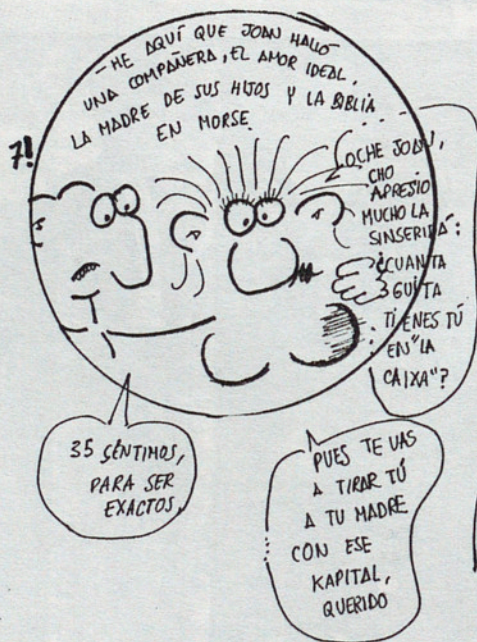 7!
- HE AQUÍ QUE JOAN HALLÓ
UNA COMPAÑERA, EL AMOR IDEAL,
LA MADRE DE SUS HIJOS Y LA BIBLIA
EN MORSE.
OCHE JOAN,
CHO
APRESIO
MUCHO LA
SINSERIDÁ:
¿CUANTA
GUITA
TIENES TÚ
EN "LA
CAIXA"?
35 SÉNTIMOS,
PARA SER
EXACTOS
PUES TE VAS
A TIRAR TÚ
A TU MADRE
CON ESE
KAPITAL,
QUERIDO